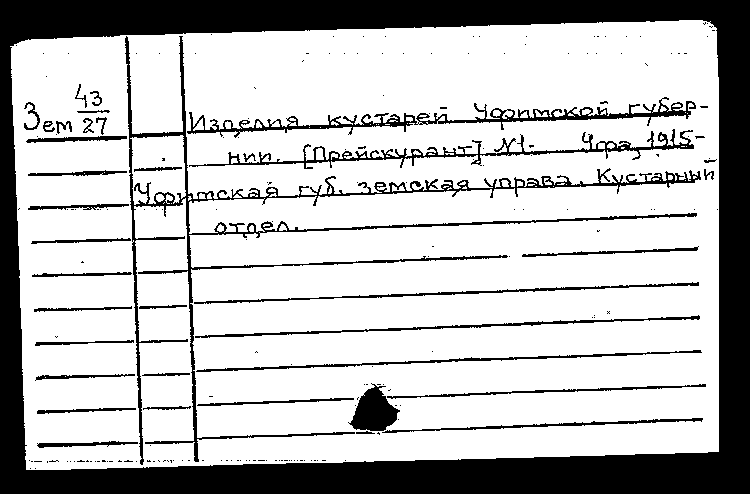 Зем 43/27 Изделия кустарей Уфимской губер-
нии. [Прейскурант] №1- Уфа, 1915-
Уфимская губ. земская управа. Кустарный
отдел.